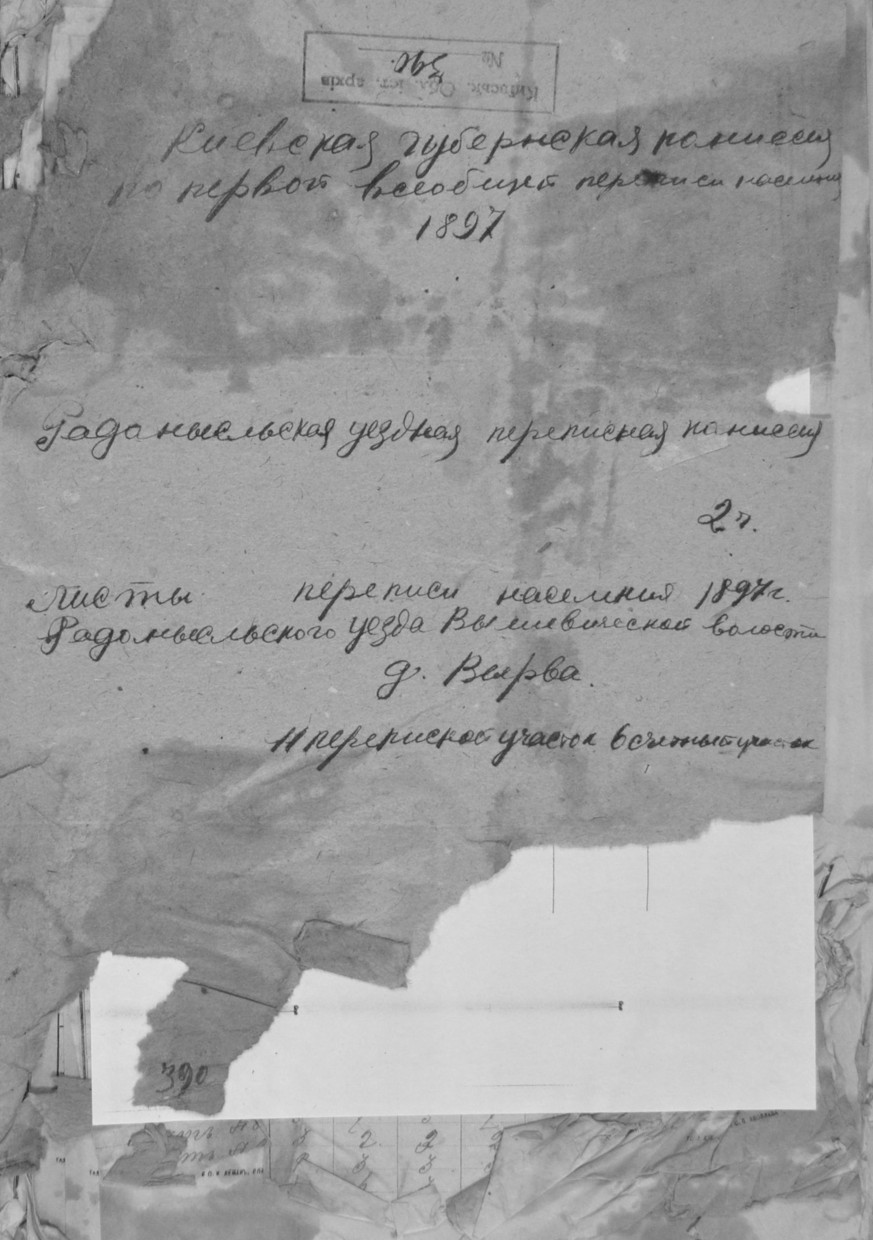 № 390.
Київськ. Обл. іст. архів
Киевская губернская комиссия
по первой всеобщей переписи населения
1897
Радомысльская уездная переписная комиссия
2 ч.
Листы переписи населения 1897 г.
Радомысльского уезда Вышевической волости
д. Вырва.
11 переписной участок 6 счетный участок
390